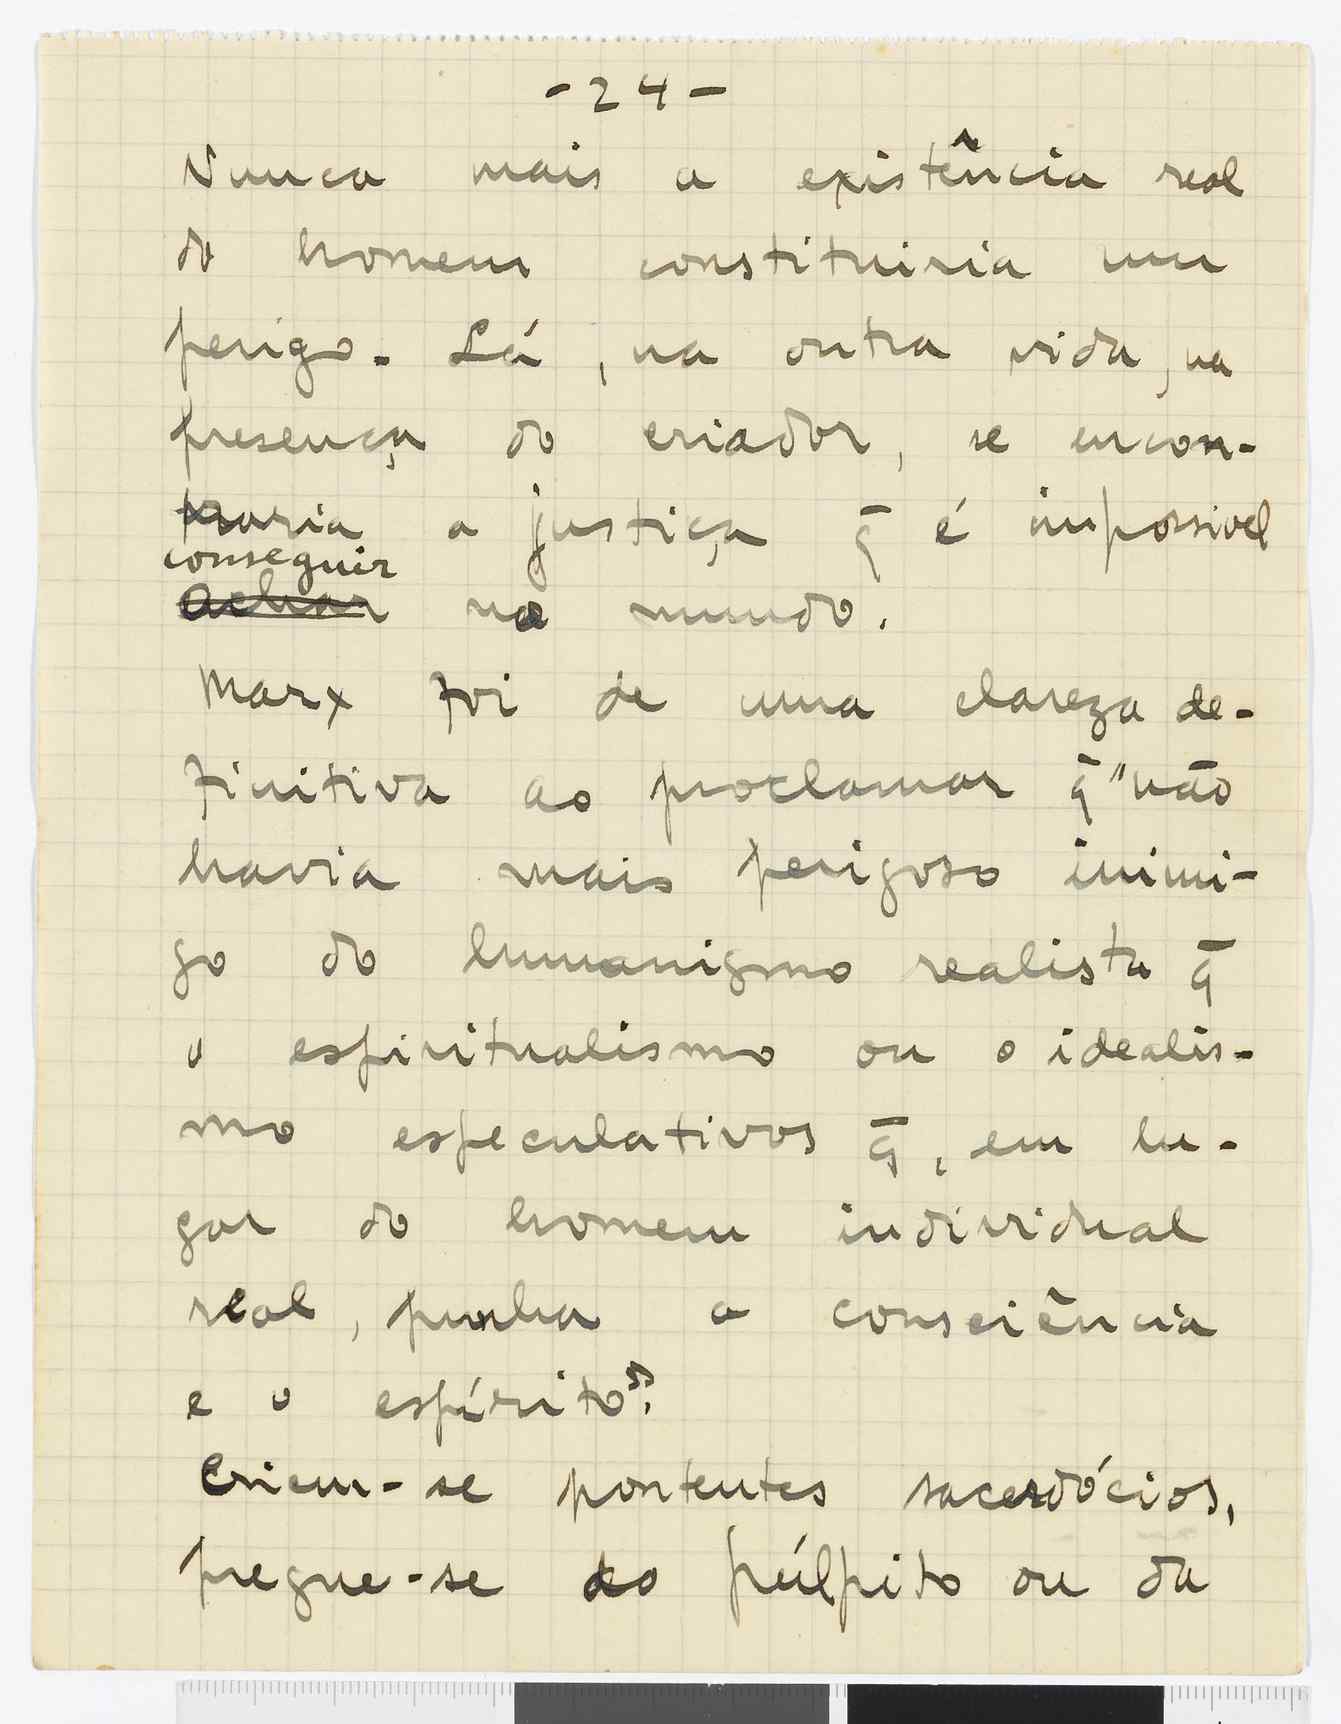 -24-
Nunca mais a existência real
do homem constituiria um
perigo. Lá, na outra vida, na
presença do criador, se encon-
traria a justiça q̄ é impossivel
conseguir
achar no mundo.
Marx foi de uma clareza de-
finitiva ao proclamar q̄ "não
havia mais perigoso inimi-
go do humanismo realista q̄
o espiritualismo ou o idealis-
mo especulativos q̄, em lu-
gar do homem individual
real, punha a consciência
e o espírito".
Criem-se portentes sacerdócios,
pregue-se do púlpito ou da